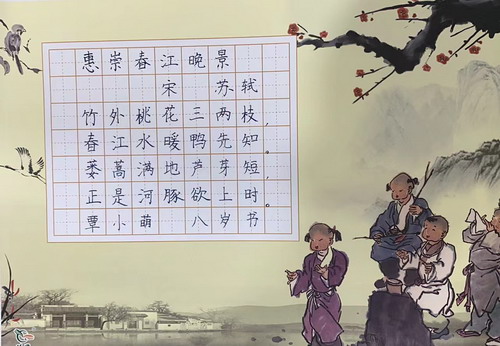 惠崇春江晚景
宋 苏轼
竹外桃花三两枝，
春江水暖鸭先知。
蒌蒿满地芦芽短，
正是河豚欲上时。
覃小萌 八岁书